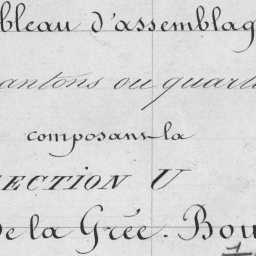 bleau d'assemblag
antons ou quarti
composant la
ECTION U
de la Grée. Bou
1